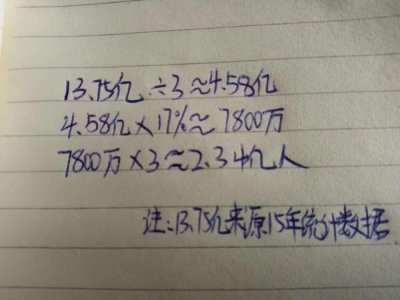 13.75亿÷3≈4.58亿
4.58亿×17%≈7800万
7800万×3≈2.34亿人
注:13.75亿来源15年统计数据